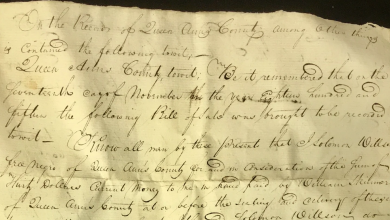 In the Records of Queen Anns County among other things
is Contained the following towit;
Queen Anns County towit; Be it remembered that on the
Seventeenth day of November in the year Eighteen hundred and
fifteen the following Bill of Sale was brought to be recorded
towit— Know all men by these present that I Solomon Willson
free Negro of Queen Anns County for and in Consideration of the Sum of
Thirty Dollars Current Money to me in hand paid by William
of Queen Anns County at or before the Sealing and delivery of these
Solomon Willson